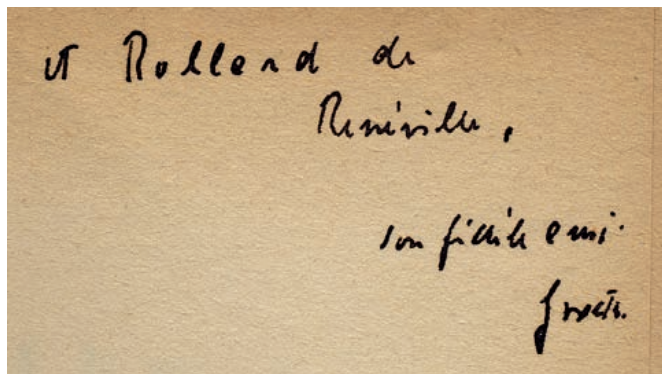 A Rolland de
Renéville,
son fidèle ami